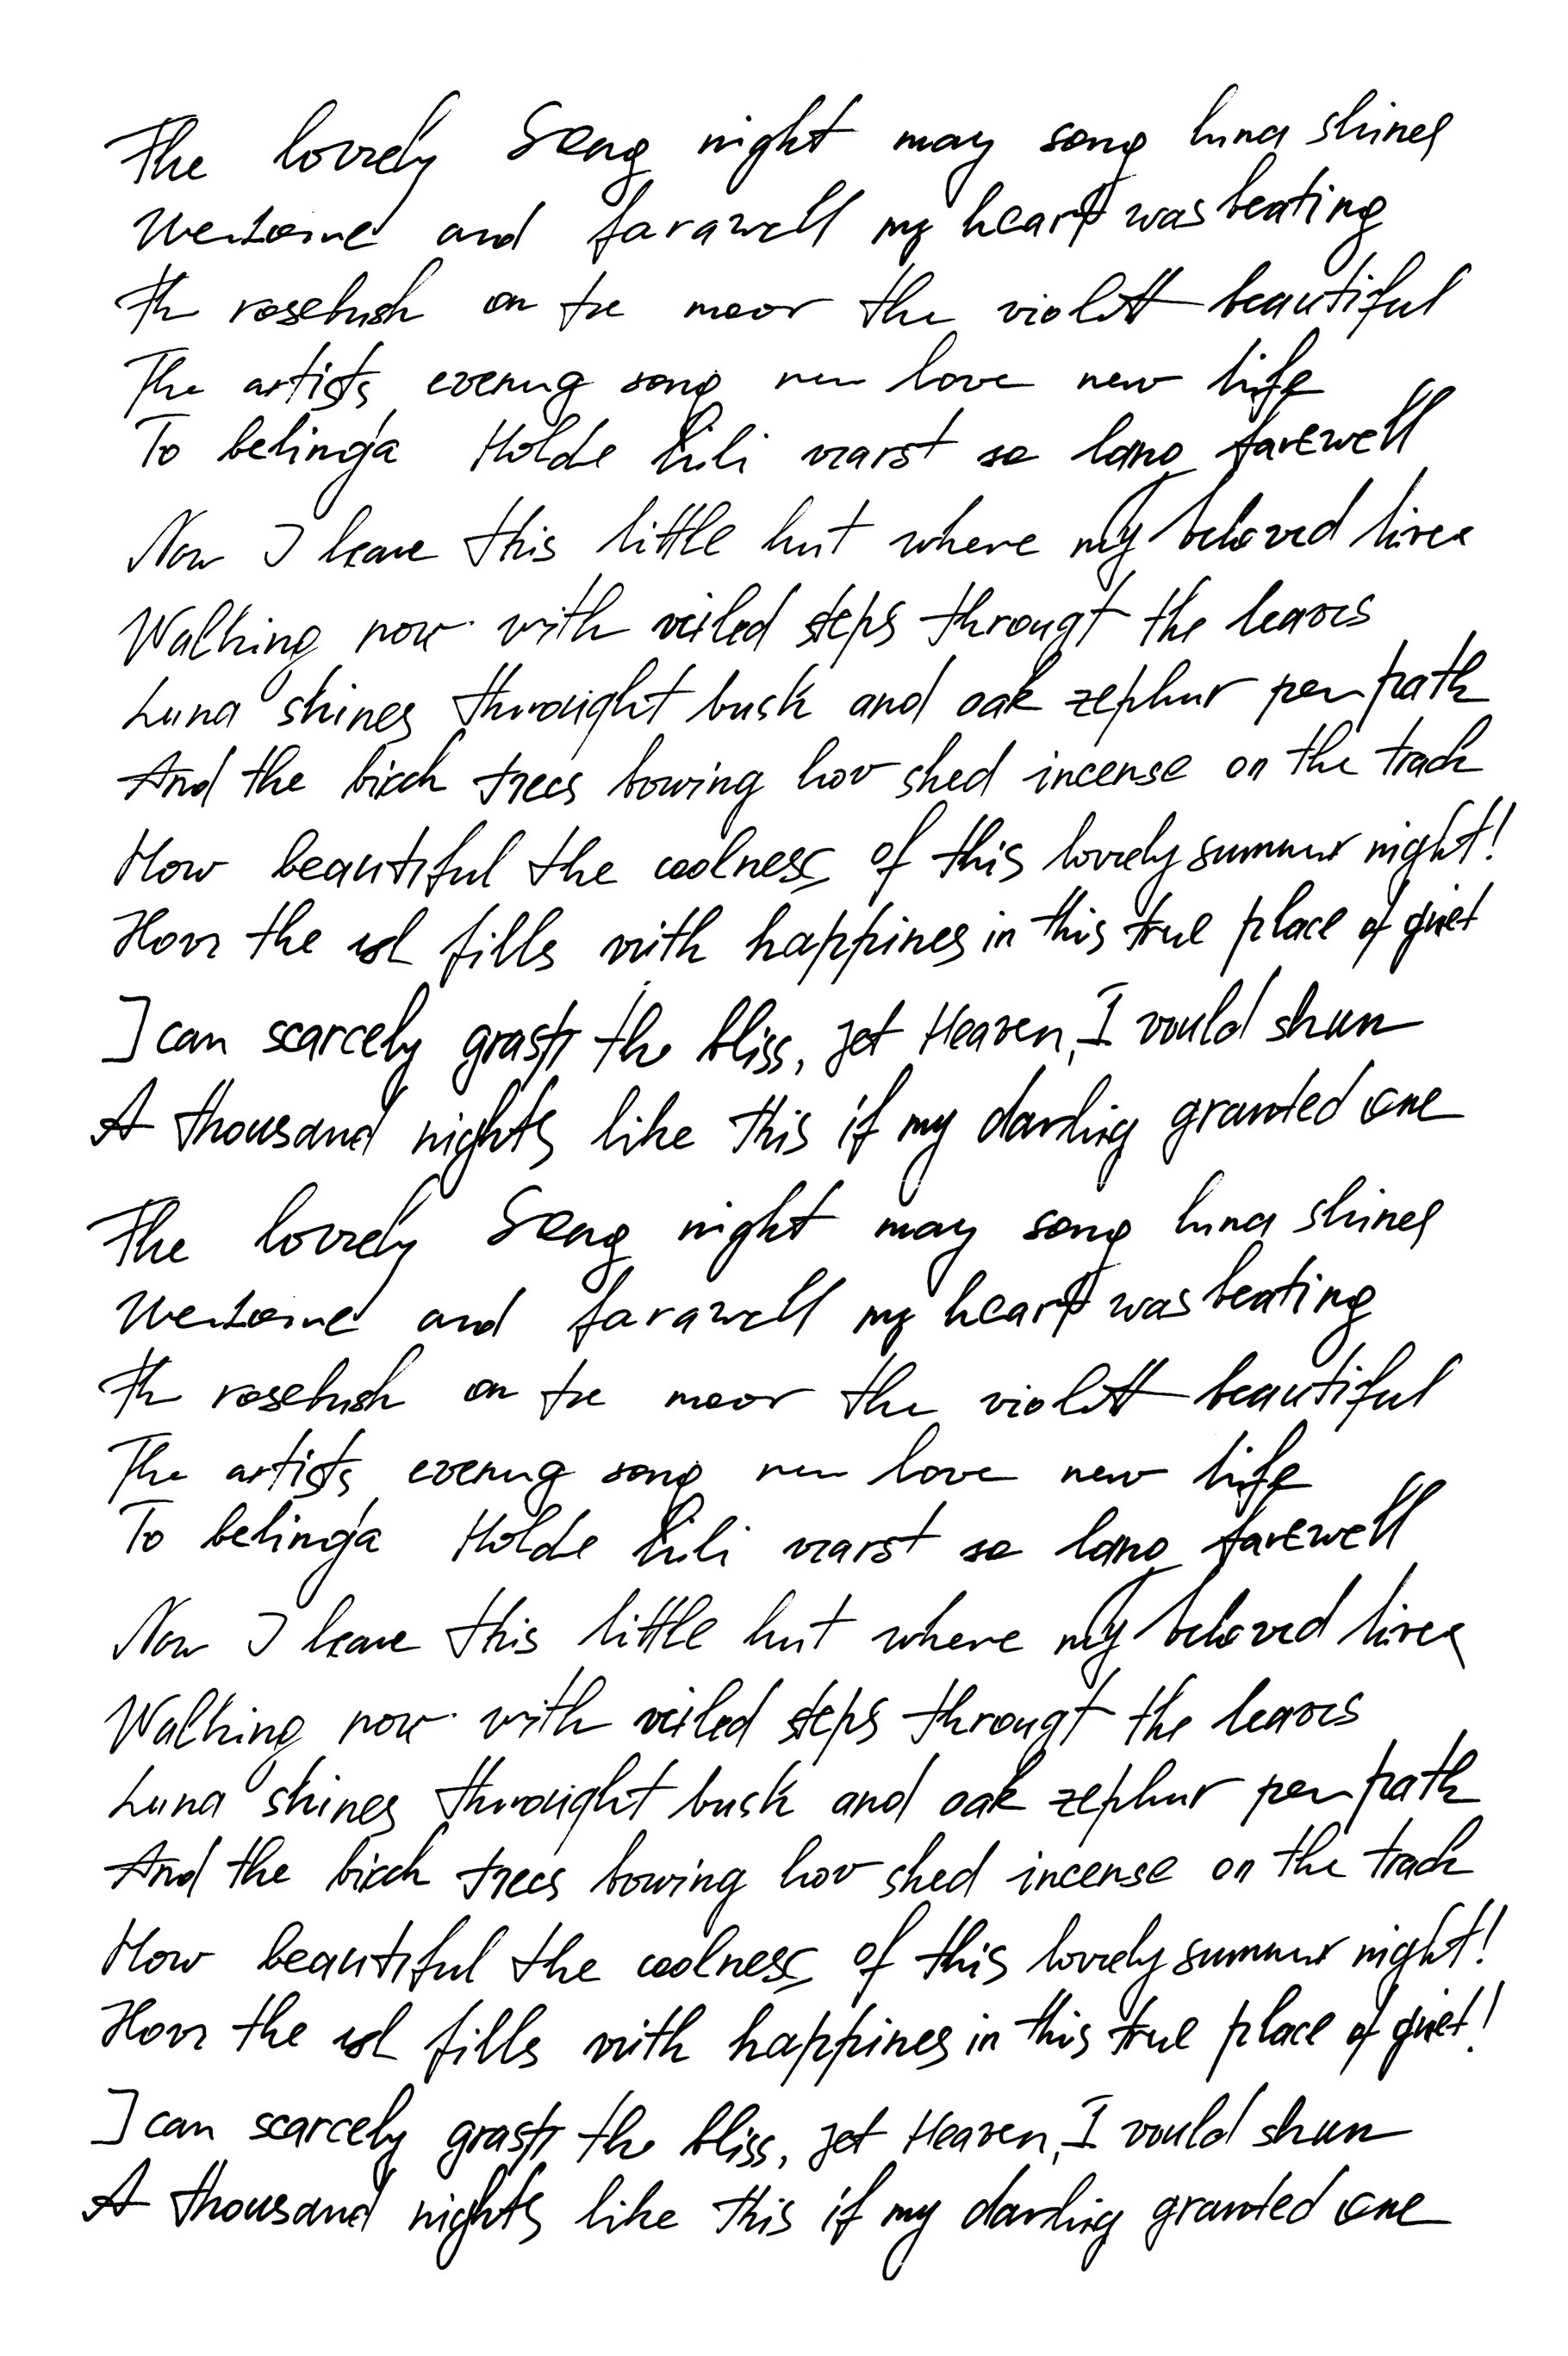 The lovely Song night may song luna shines
Welcome and farawell my heart was beating
Th rosebush on the moor the violett beautiful
The artists evening song new love new life
To belinda Holde Lili warst so lang farewell
Now I leave this little hut where my beloved lives
Walking now with veiled steps througt the leaves
Luna shines throught busk and oak zephur per path
And the birch trees bowing low shed incense on the track
How beautiful the coolness of this lovely summer night!
How the sol fills with happines in this true place of quiet
I can scarcely grasp the bliss, jet Heaven, I would shun
A thousand nights like this if my darling granted one
The lovely Song night may song luna shines
Welcome and farawell my heart was beating
Th rosebush on the moor the violett beautiful
The artists evening song new love new life
To belinda Holde Lili warst so lang farewell
Now I leave this little hut where my beloved lives
Walking now with veiled steps througt the leaves
Luna shines throught busk and oak zephur per path
And the birch trees bowing low shed incense on the track
How beautiful the coolness of this lovely summer night!
How the sol fills with happines in this true place of quiet!
I can scarcely grasp the bliss, jet Heaven, I would shun
A thousand nights like this if my darling granted one